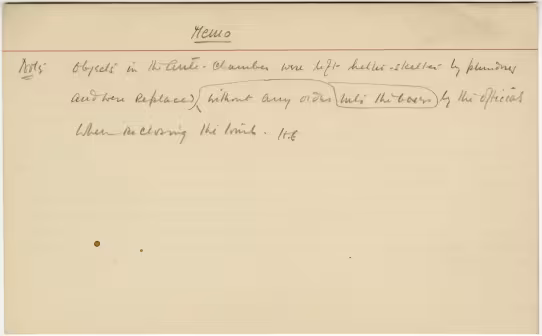 Memo
Note Objects in the Ante-Chamber were left helter-skelter by plunderers
and were replaced, without any order into the boxes by the officials
when reclosing the tomb.